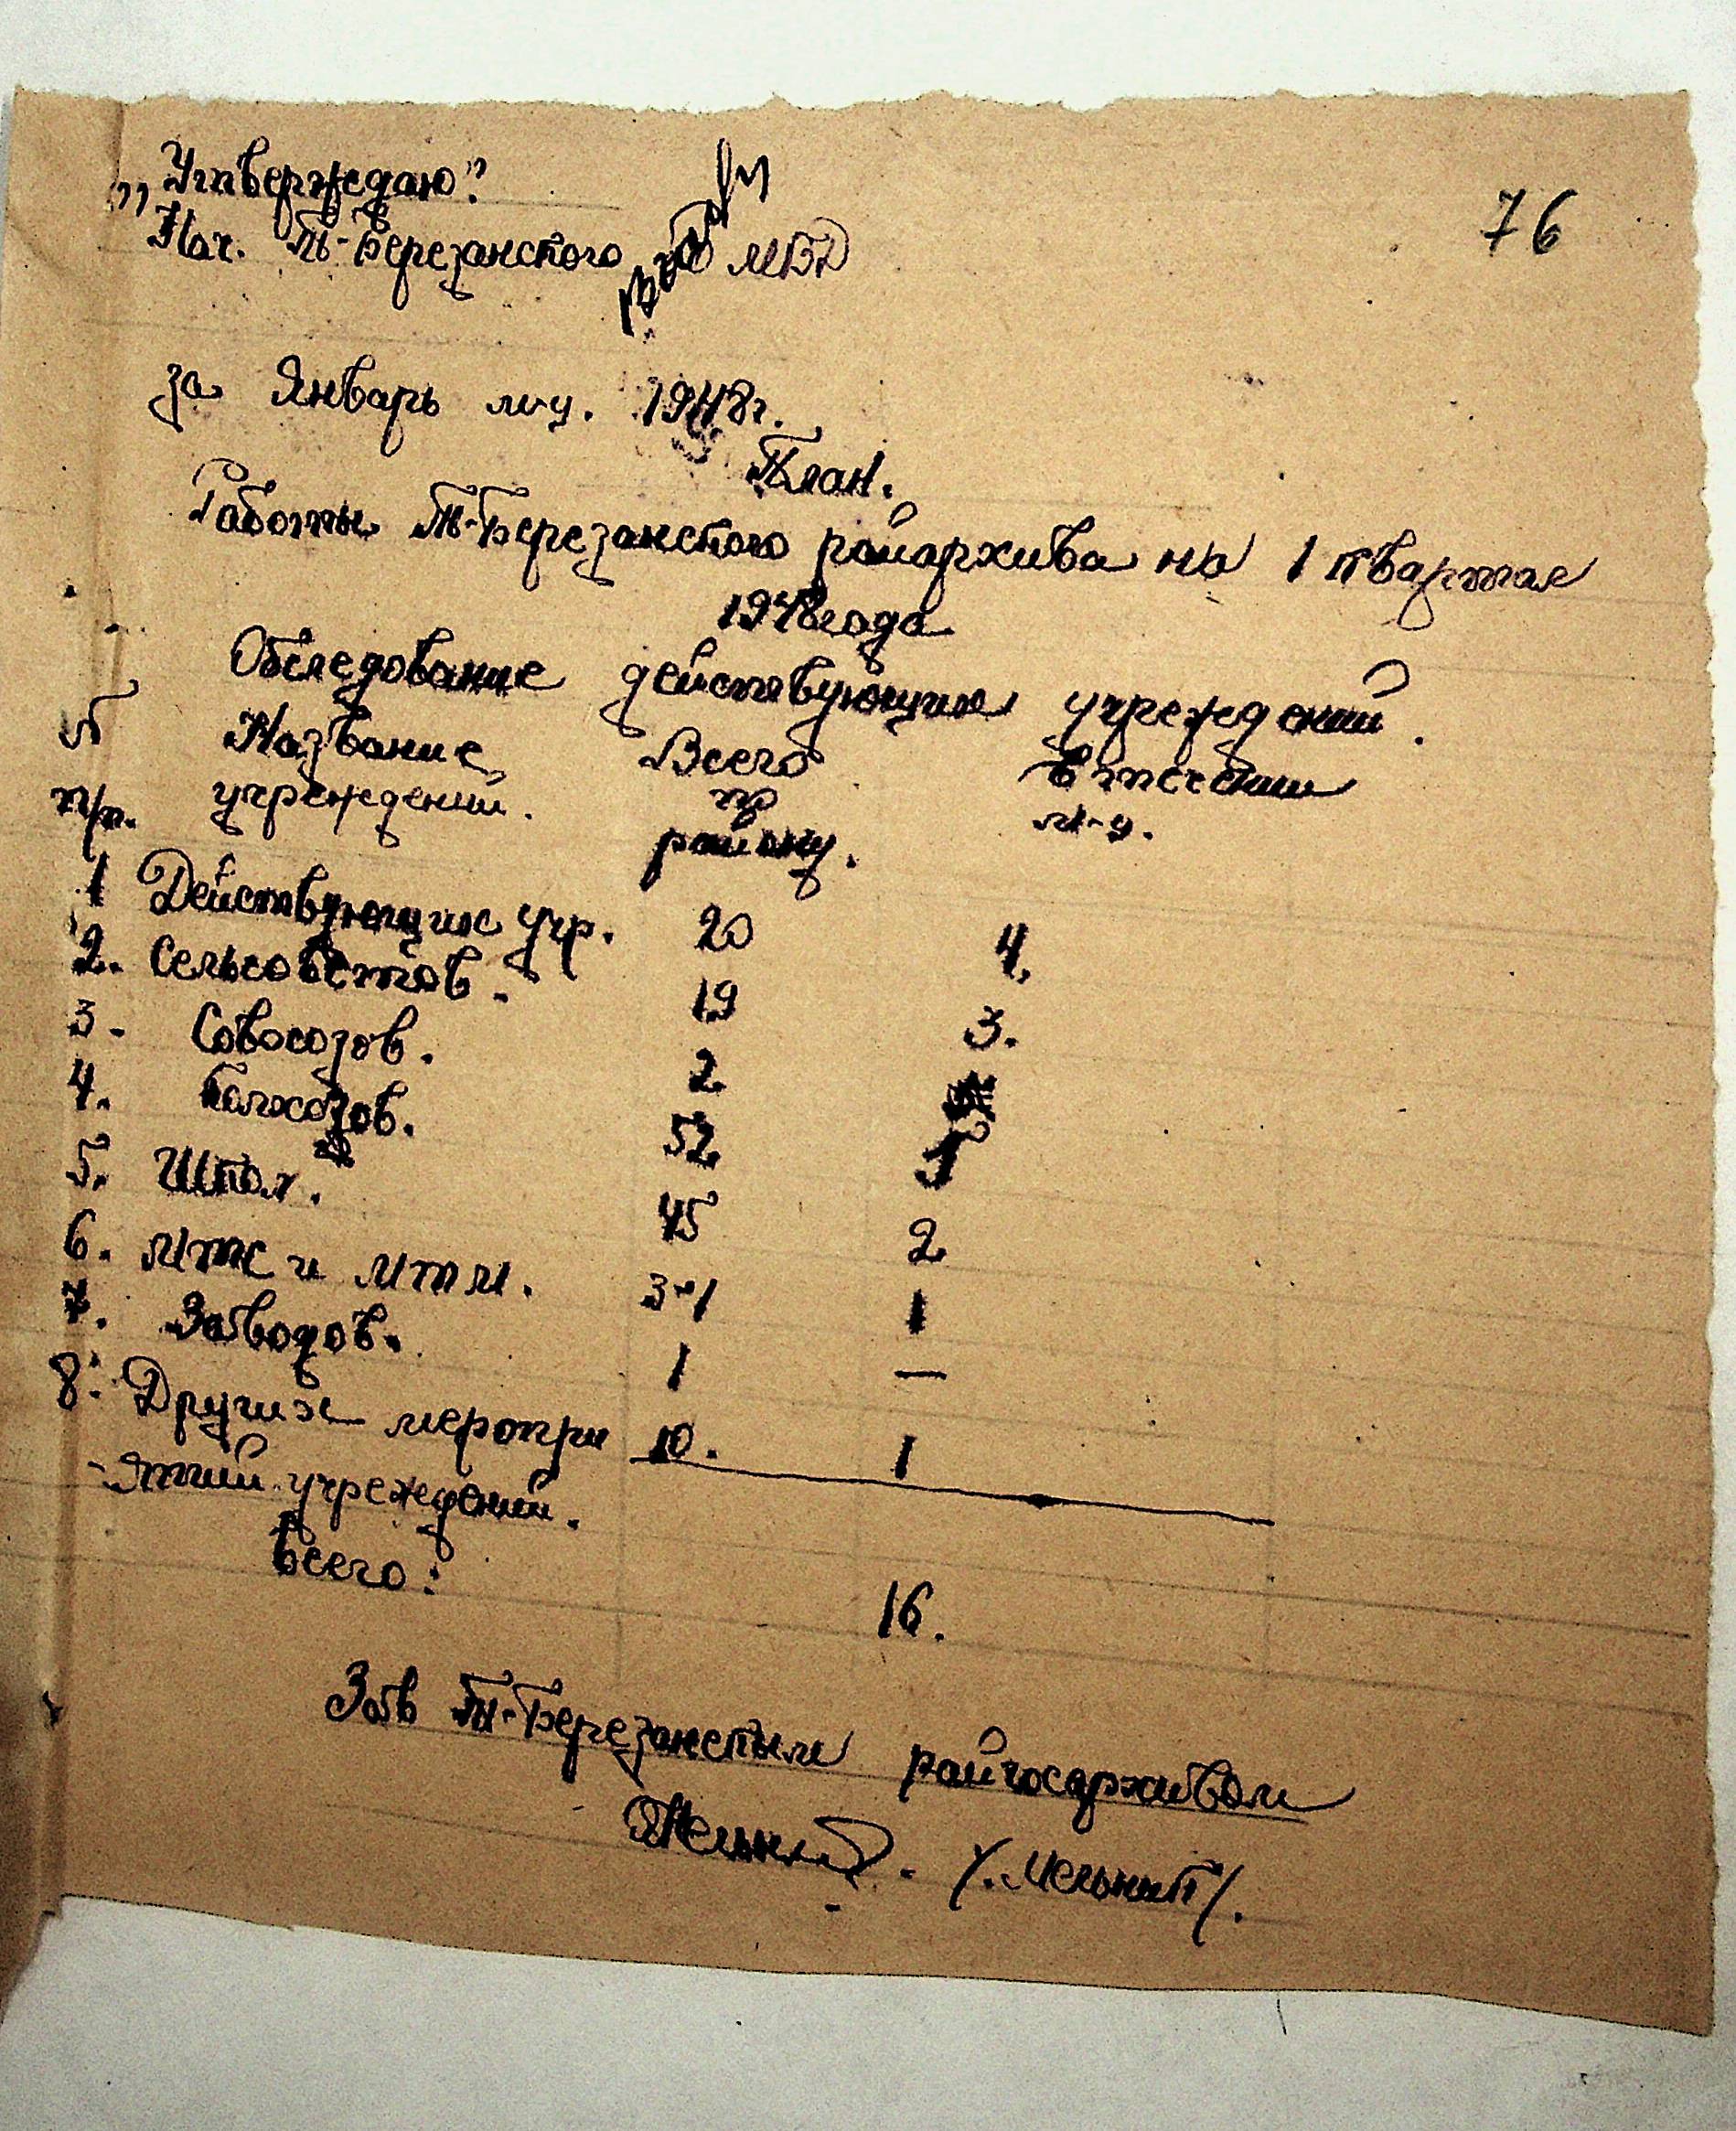 76
„Утверждаю“
Нач. Т-Березанского МВД
за Январь м-ц. 1948г.
План.
Работы Т-Березанского райархива на 1 квартал
1948 года
Обследование действующих учреждений.
№ Название Всего в течении
п/п. учреждений. по м-ц.
району.
1 Действующих учр. 20 4.
2. Сельсоветов. 19 3.
3. Совхозов. 2
4. Колхозов. 52 5
5. Школ. 45 2
6. МТС и МТМ. 3-1 1
7. Заводов. 1 —
8. Других меропри 10. 1
-ятий учреждений.
Всего: 16.
Зав Т-Березанским райгосархивом
/.Мельник/.